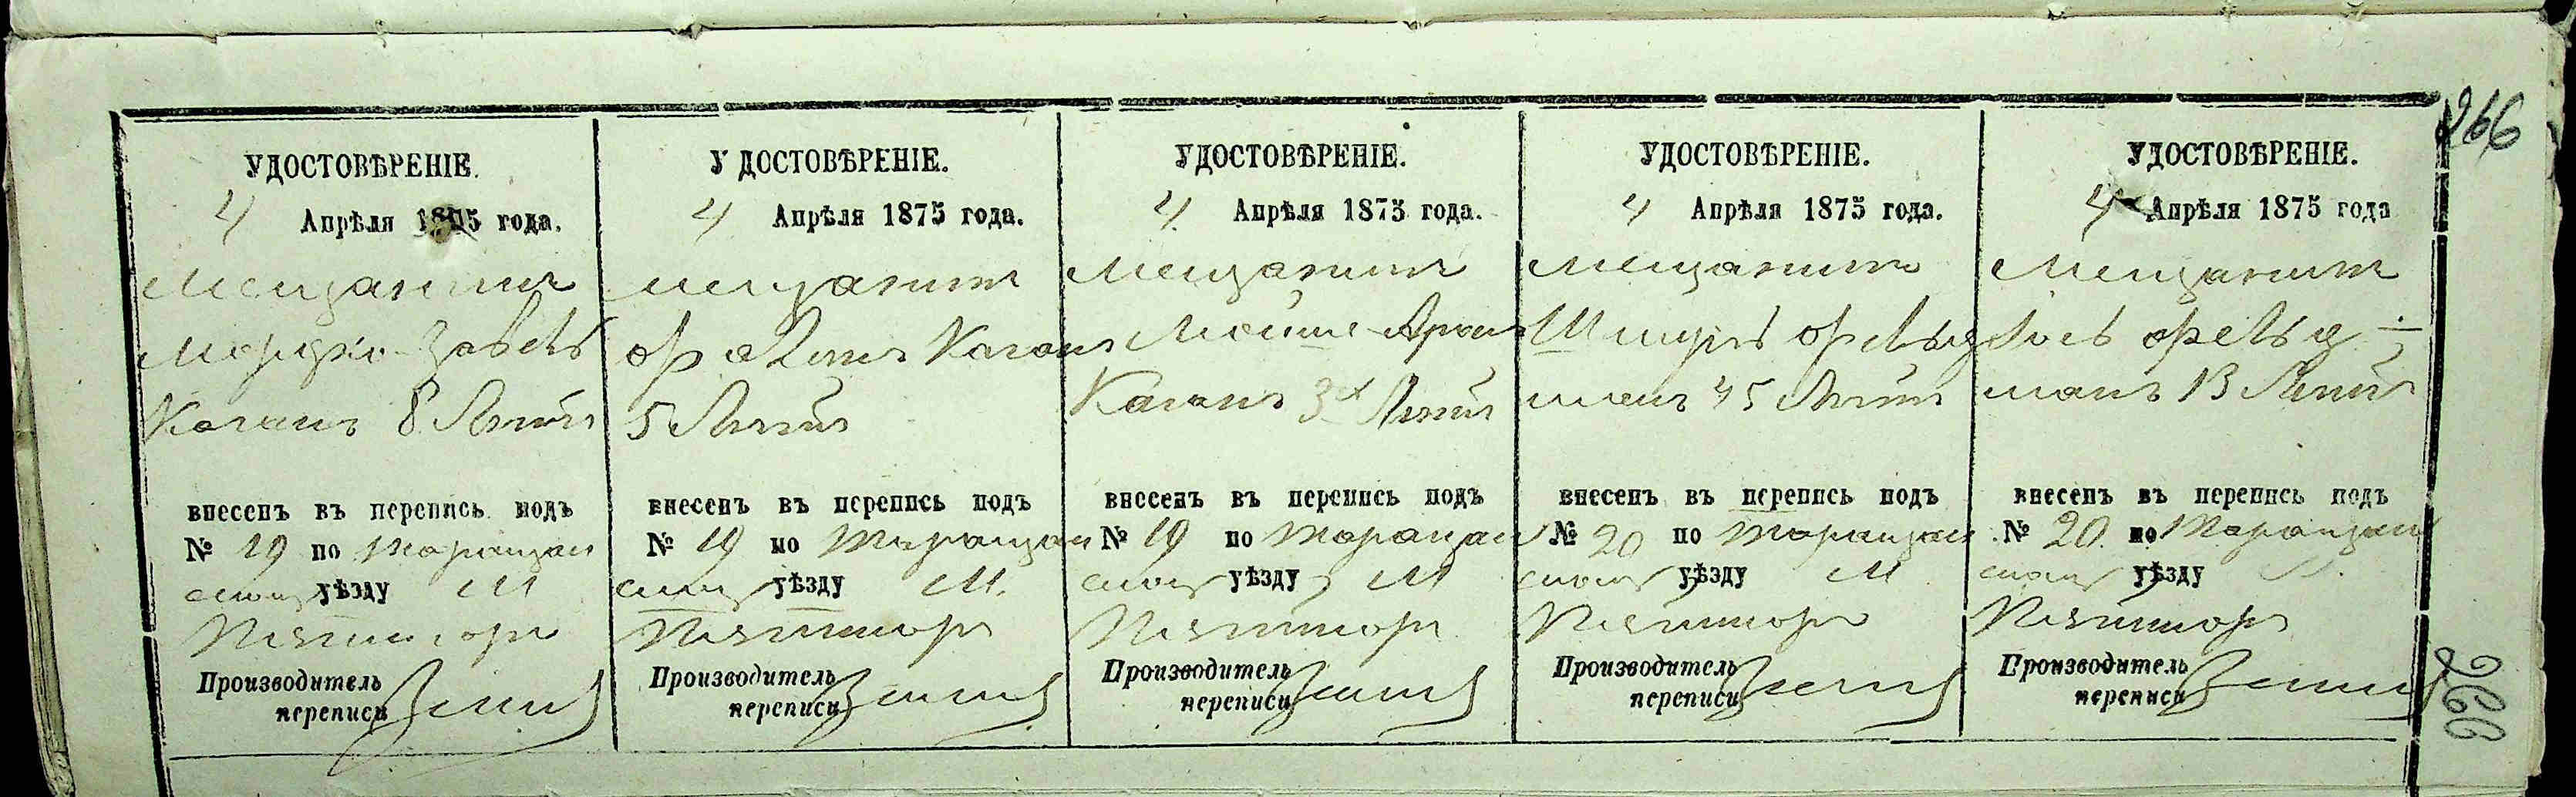 266
УДОСТОВѢРЕНІЕ.
4 Апрѣля 1875 года.
Мещанинъ
Мордко-
Каганъ 8 Лѣтъ
внесенъ въ перепись подъ
№ 19 по Таращан
скому уѣзду М
Производитель
переписи
У ДОСТОВѢРЕНІЕ.
4 Апрѣля 1875 года.
мещанинъ
Каганъ
5 Лѣтъ
внесенъ въ перепись подъ
№ 19 по Таращан
скому уѣзду М.
Производитель
переписи
УДОСТОВѢРЕНІЕ.
4 Апрѣля 1875 года.
Мещанинъ
Мойше-Аронъ
Каганъ 3х Лѣтъ
внесенъ въ перепись подъ
№ 19 по Таращан
скому уѣзду М
Производитель
переписи
УДОСТОВѢРЕНІЕ.
4 Апрѣля 1875 года.
Мещанинъ
манъ 45 Лѣтъ
внесенъ въ перепись подъ
№ 20 по Таращан
скому уѣзду М
Производитель
переписи
УДОСТОВѢРЕНІЕ.
4 Апрѣля 1875 года
Мещанинъ
манъ 13 Лѣтъ
внесенъ въ перепись подъ
№ 20. по Таращан
скому уѣзду М.
Производитель
переписи
266